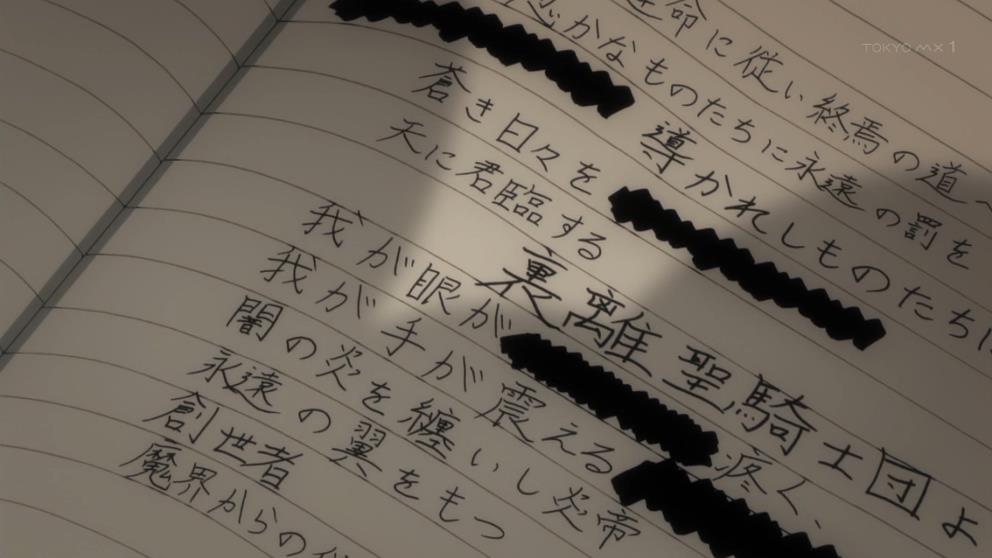 TOKYO MX 1
運命に従い終焉の道へ
愚かなものたちに永遠の罰を
導かれしものたちに
蒼き日々を
天に君臨する
裏離聖騎士団よ
我が眼が
疼く、
我が手が震える
闇の炎を纏いし炎帝
永遠の翼をもつ
創世者
魔界からの